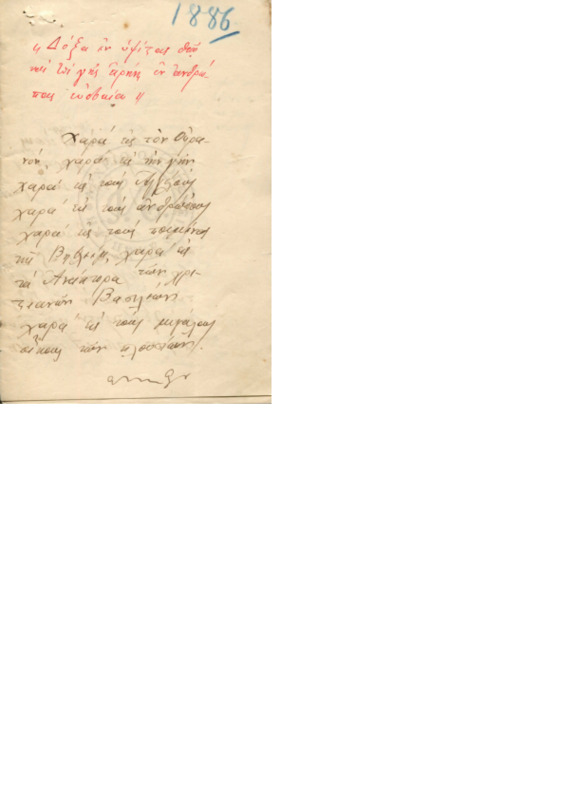 1886
« Δόξα ἐν ὑψίστοις Θεῷ
καὶ ἐπὶ γῆς εἰρήνη ἐν ἀνθρώ-
ποις εὐδοκία »
Χαρά εἰς τὸν Οὐρα-
νόν, χαρά εἰς τὴν γῆν
χαρά εἰς τοὺς Ἀγγέλους
χαρά εἰς τοὺς ἀνθρώπους
χαρά εἰς τοὺς ποιμένας
τῆς Βηθλεέμ, χαρά εἰς
τὰ Ἀνάκτορα τῶν χρι-
στιανῶν Βασιλέων
χαρά εἰς τοὺς μεγάλους
οἴκους τῶν πλουσίων.